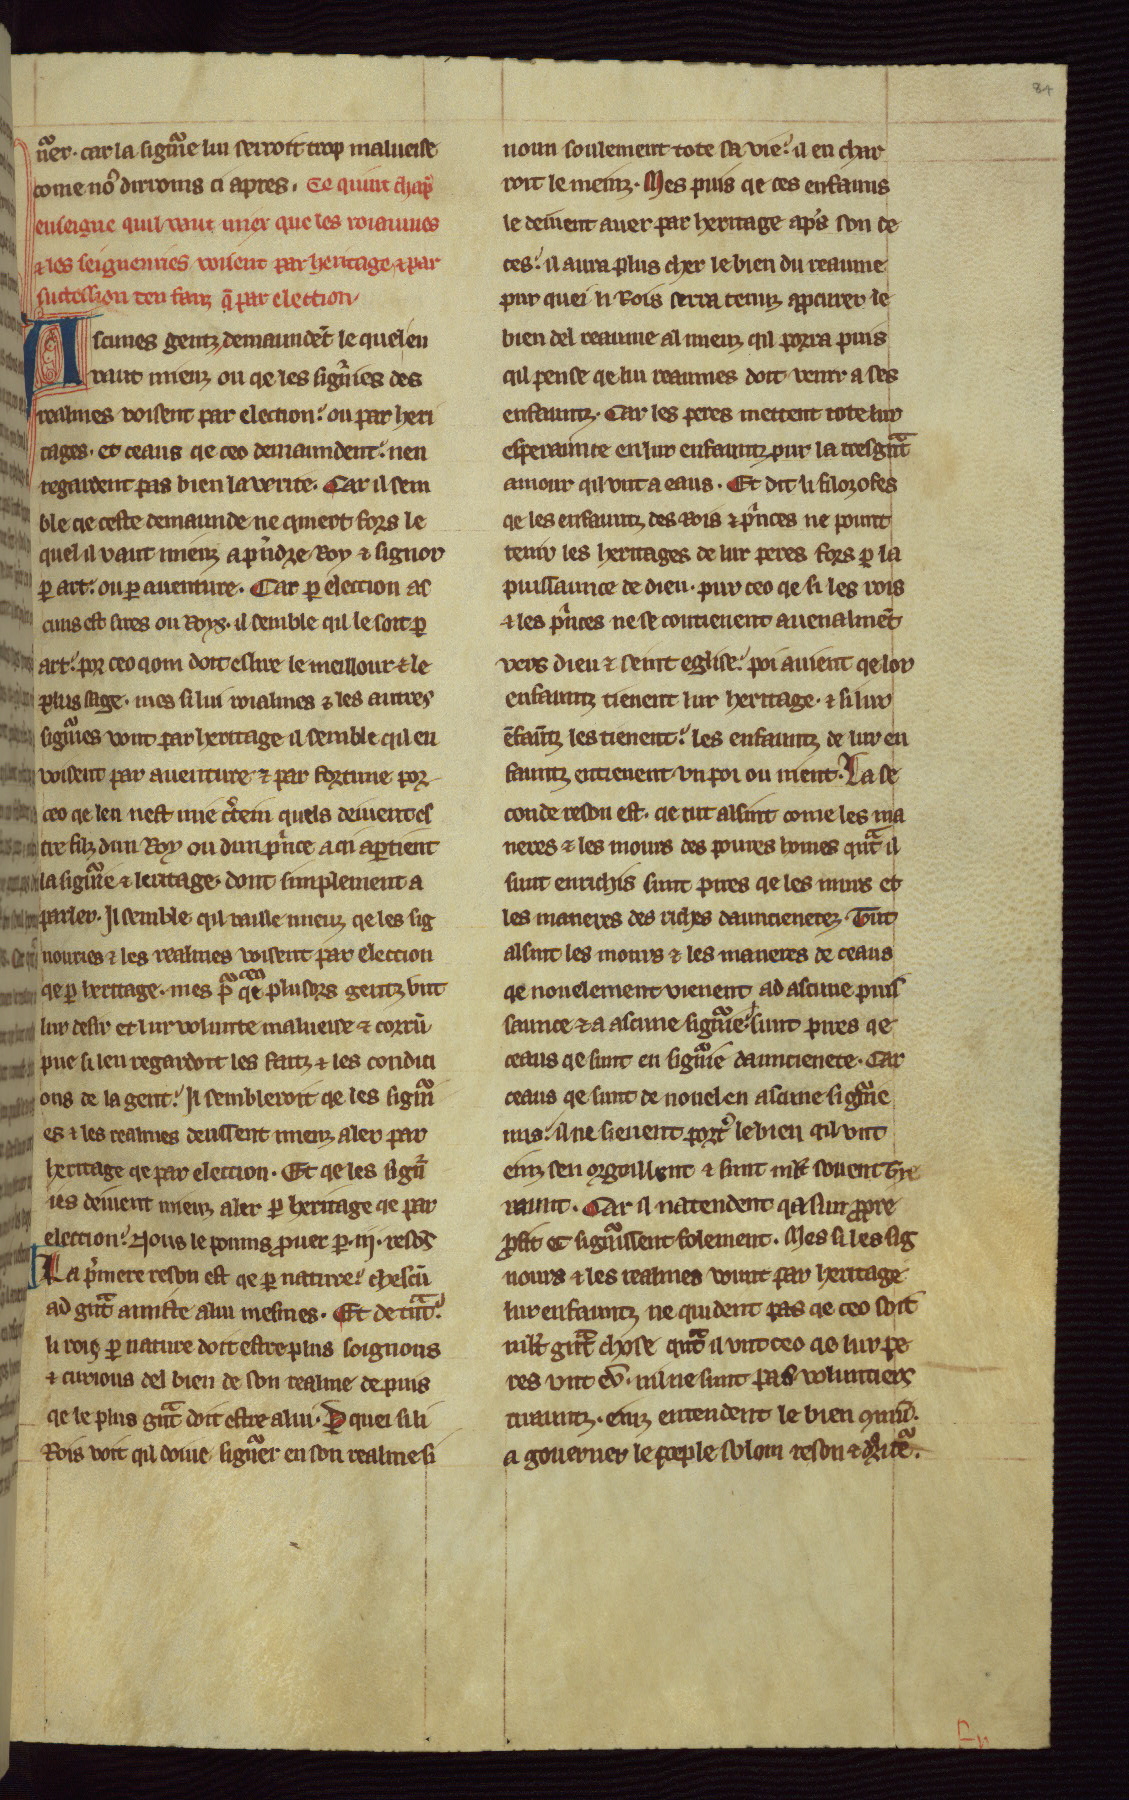 84
n͛er· car la sign͛ie lui serroit trop malueise
come no⁹ dirroms ci apres. Ce quint chap̛
enseigne quil vaut mier que les roiaumes
⁊ les seigneuries voisent par heritage ⁊ par
succession denfanz q̄ par election
Ascunes gentz demaundēt le quel en
vaut mienz ou qe les sign͛ies des
realmes voisent par election? ou par heri
tages· et ceaus qe ceo demaundent? nen
regardent pas bien la verite. Car il sem
ble qe ceste demaunde ne quert fors le
quel il vaut mienz a p̛ndre Roy ⁊ signor
ꝑ art? ou ꝑ auenture. Car ꝑ election as
cuns est sires ou Roys. il semble qil le soit ꝑ
art? por ceo qom doit eslire le meillour ⁊ le
plus sage. mes si lui roialmes ⁊ les autres
sign͛ies vont par heritage il semble qil en
voisent par auenture ⁊ par fortune por
ceo qe len nest mie c͛tein quels deiuent es
tre filz dun Roy ou dun p̛nce a qi aꝑtient
la sign͛ie ⁊ leritage. dont simplement a
parler. Il semble qil vaille mieuz qe les sig
nouries ⁊ les realmes voisent par election
qe ꝑ heritage. mes p̛ ceo qe plusors gentz vnt
lur desir et lur volunte malueise ⁊ corrū
pue si len regardoit les faitz ⁊ les condici
ons de la gent? Il sembleroit qe les sign͛i
es ⁊ les realmes deussent mienz aler par
heritage qe par election. Et qe les sign͛
ies deiuent mienz aler ꝑ heritage qe par
election? Nous le poums ꝓuer ꝑ .iij. resōs
La p̛mere reson est qe ꝑ nature? chescū
ad gᵃnt amiste a lui mesmes. Et de tāt?
li rois ꝑ nature doit estre plus soignous
⁊ curious del bien de son realme de puis
qe le plus gᵃnt doit estre a lui. Ꝑ quei si li
Rois voit qil doiue sign͛er en son realme si
noun soulement tote sa vie? il en char
roit le meinz. Mes puis qe ces enfauns
le deiuent auer par heritage ap̛s son de
ces? il aura plus cher le bien du reaume
pur quei li Rois serra tenuz a ꝓcurer le
bien del reaume al mieuz qil porra puis
qil pense qe lui reaumes doit venir a ses
enfauntz. Car les peres mettent tote lur
esperaunce en lur enfauntz pur la tresgᵃnt
amour qil vnt a eaus. Et dit li filozofes
qe les enfauntz des Rois ⁊ p̛nces ne pount
tenir les heritages de lur peres fors ꝑ la
puissaunce de dieu. pur ceo qe si les rois
⁊ les p̛nces ne se contienent auenalmēt
vers dieu ⁊ seint eglise? poi auient qe lor
enfauntz tienent lur heritage. ⁊ si lur
ēfaūtz les tienent? les enfauntz de lur en
fauntz entienent vn poi ou nient. La se
conde reson est. qe tut alsint come les ma
neres ⁊ les mours des poures homes qᵃnt il
sunt enrichis sunt pires qe les murs et
les maneres des riches dauncienetez. Tout
alsint les mours ⁊ les maneres de ceaus
qe nouelement vienent ad ascune puis
saunce ⁊ a ascune sign͛ie? sunt pires qe
ceaus qe sunt en sign͛ie dauncienete. Car
ceaus qe sunt de nouel en ascune sign͛ie
mis? il ne sieuent port͛ le bien qil vnt
einz sen orgoillent ⁊ sunt mlt̄ souent tyr
raunt. Car il natendent qa lur ꝓpre
ꝓfit et sign͛issent folement. Mes si les sig
nours ⁊ les realmes vount par heritage
lur enfauntz ne quident pas qe ceo soit
mlt̄ gᵃnt chose qᵃnt il vnt ceo qe lur pe
res vnt eu. ml ne sunt pas voluntiers
tirauntz. einz entendent le bien ꝯmū.
a gouerner le poeple solom reson ⁊ droiture.